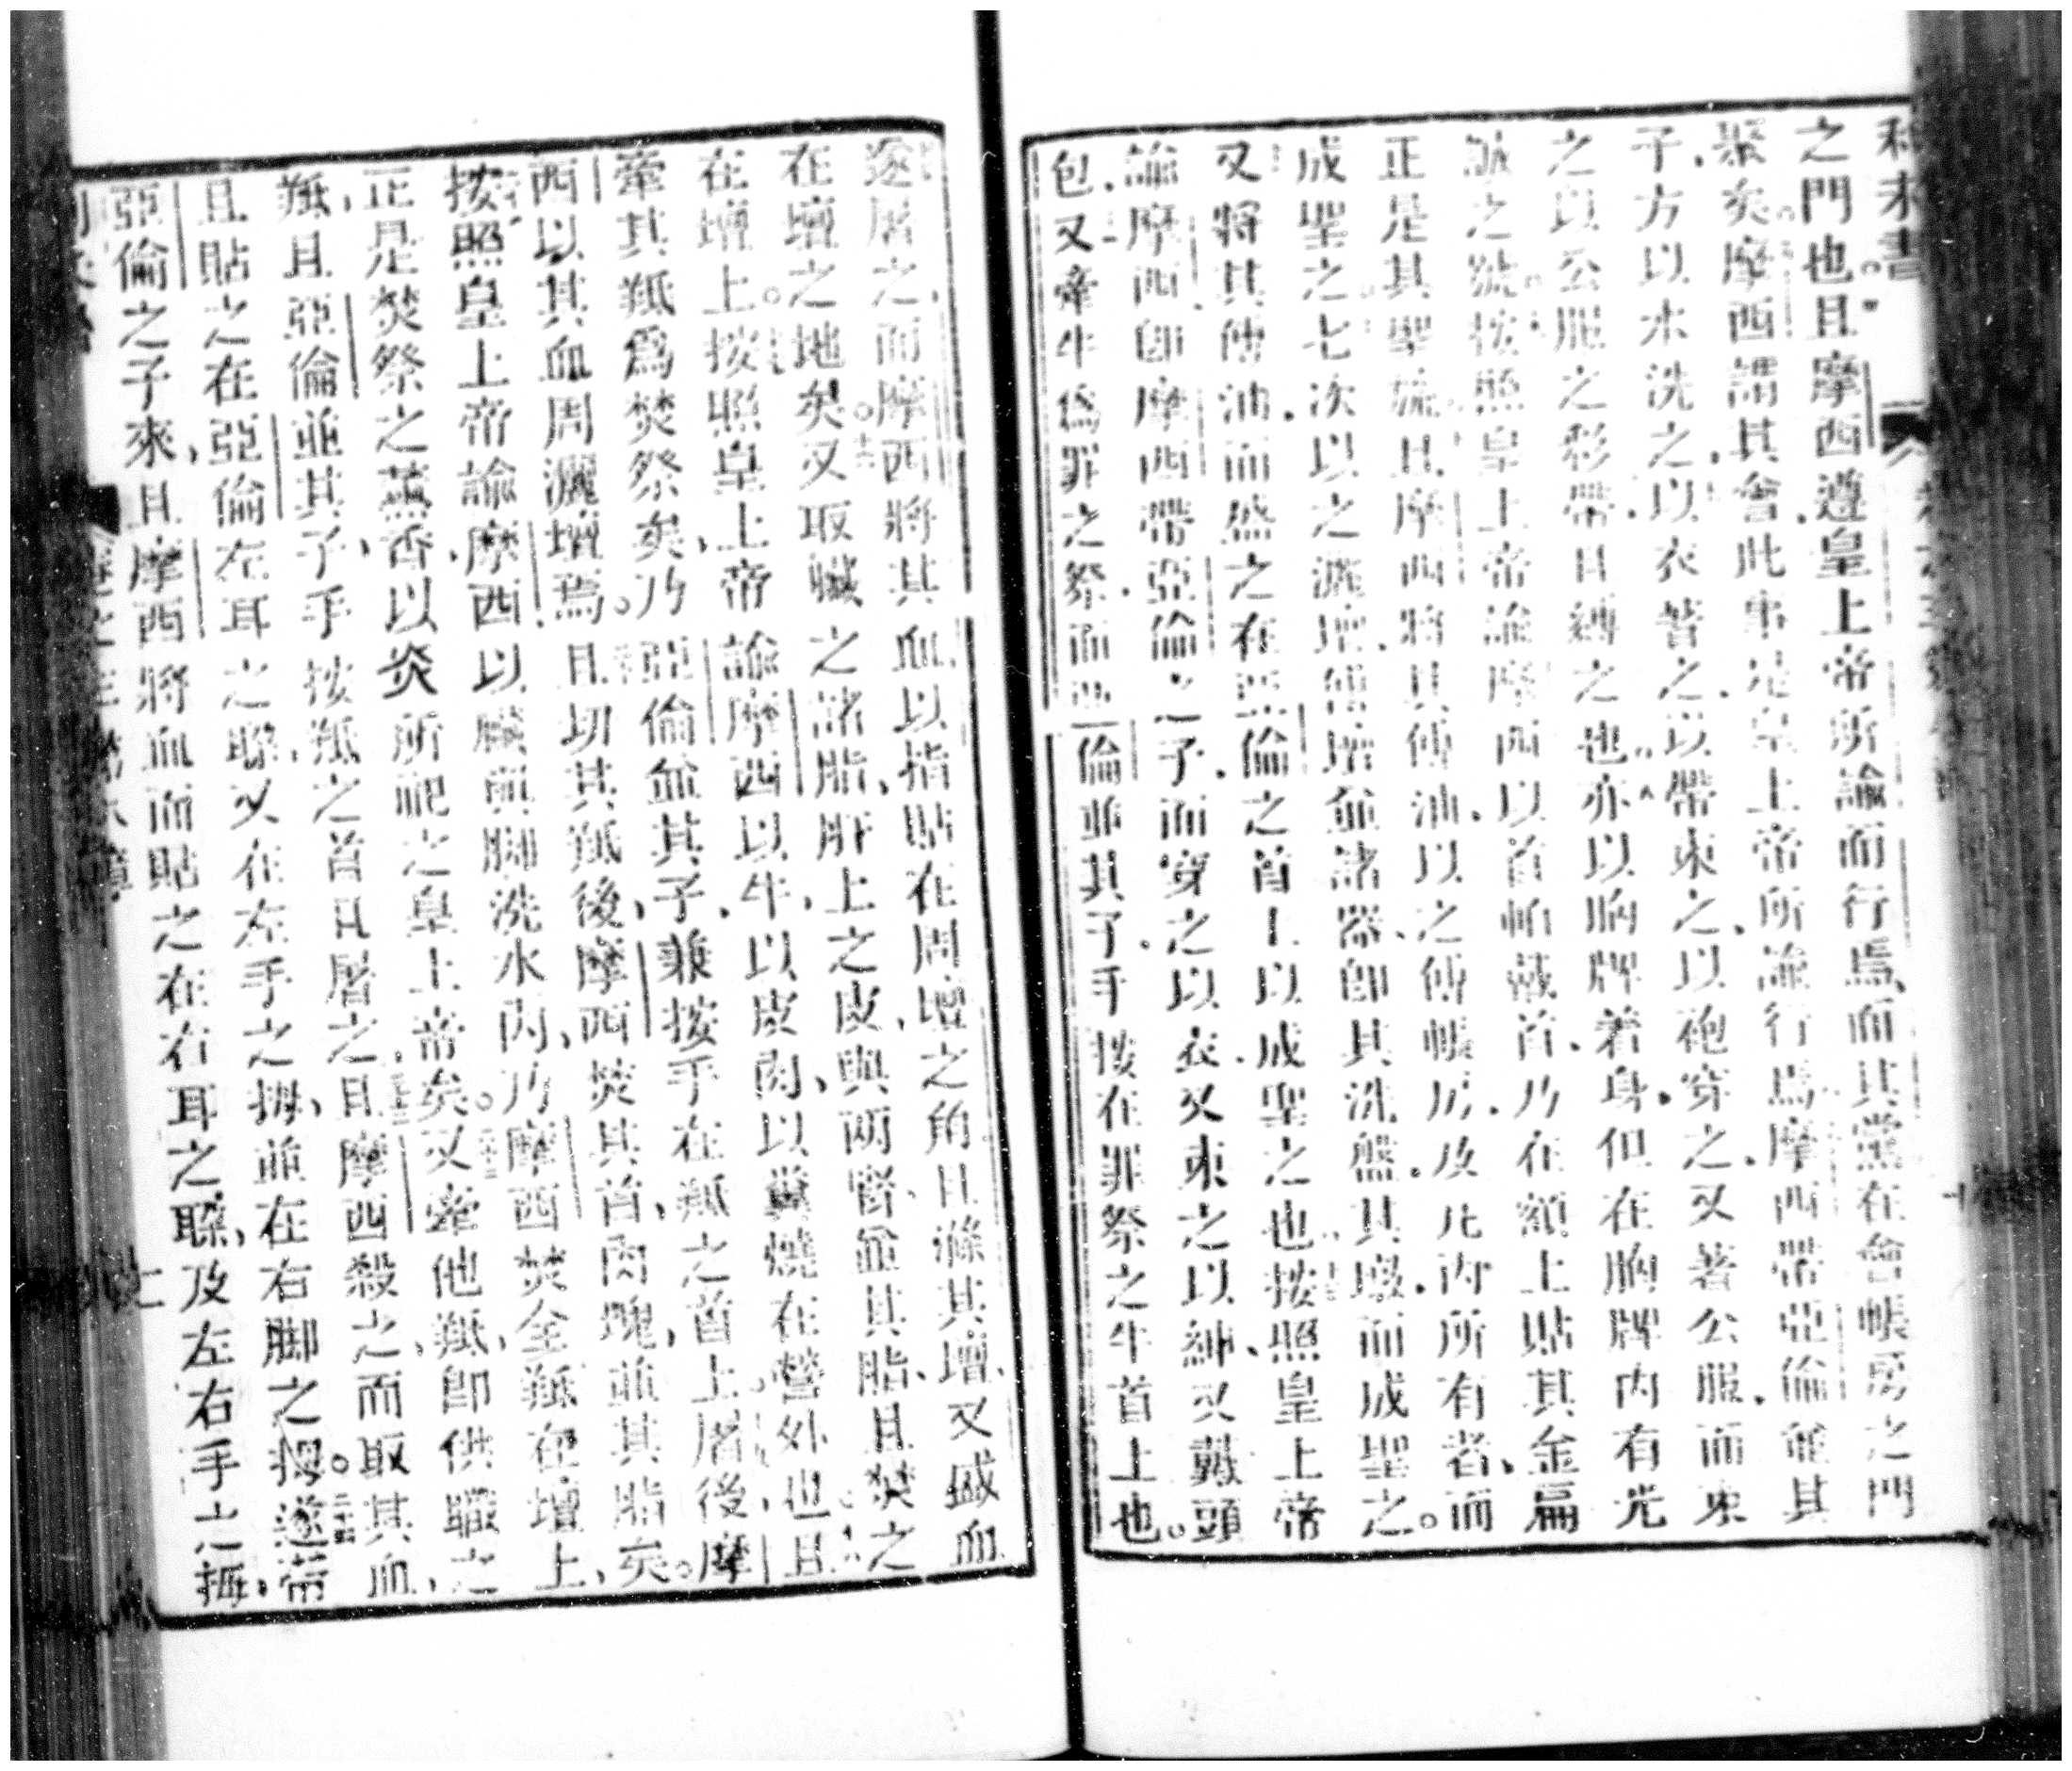 利未書
之門也。且摩西遵皇上帝所諭而行焉、而其黨在會帳房之門
聚矣。摩西謂其會、此事是皇上帝所諭行焉。摩西帶亞倫並其
子、方以水洗之、以衣著之、以帶束之、以袍穿之、又著公服、而束
之以公服之彩帶、且縛之也。亦以胸牌着身、但在胸牌內有光
誠之號。按照皇上帝諭摩西、以首帕戴首、乃在額上貼其金扁
正是其聖號。且摩西將其傅油、以之傅帳房、及凡內所有者、而
成聖之。七次以之灑壇、傅壇並諸器、即其洗盤、其墩、而成聖之。
又將其傅油、而盛之在亞倫之首上、以成聖之也。按照皇上帝
諭摩西、即摩西帶亞倫之子、而穿之以衣、又束之以紳、又戴頭
包、又牽牛爲罪之祭、而亞倫並其子、手按在罪祭之牛首上也。
遂屠之、而摩西將其血、以指貼在周壇之角、且滌其壇、又盛血
在壇之地矣。又取臟之諸脂、肝上之皮、與兩腎、並其脂、且焚之
在壇上。按照皇上帝諭摩西、以牛、以皮肉、以糞、燒在營外也。且
牽其羝爲焚祭矣、乃亞倫並其子、兼按手在羝之首上。屠後摩
西以其血周灑壇焉。且切其羝後、摩西焚其首、肉塊、並其脂矣。
按照皇上帝諭摩西、以臟與脚洗水內、乃摩西焚全羝在壇上、
正是焚祭之薰香、以炎所祀之皇上帝矣。又牽他羝、即供職之
羝、且亞倫並其子、手按羝之首、且屠之、且摩西殺之、而取其血、
且貼之在亞倫左耳之聎、又在左手之拇、並在右脚之拇。遂帶
亞倫之子來、且摩西將血而貼之在右耳之聎、及左右手之拇、